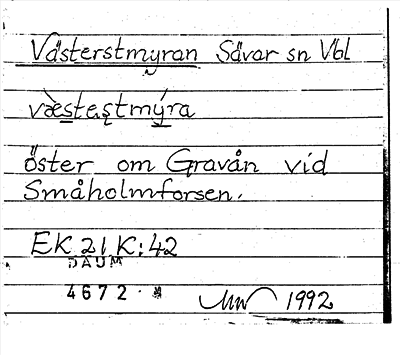 Västerstmyran Sävar sn Vbl
væ̀stəʂtmý̱ra
öster om Gravån vid
Småholmforsen.
EK 21 K:42
DAUM
4672
1992